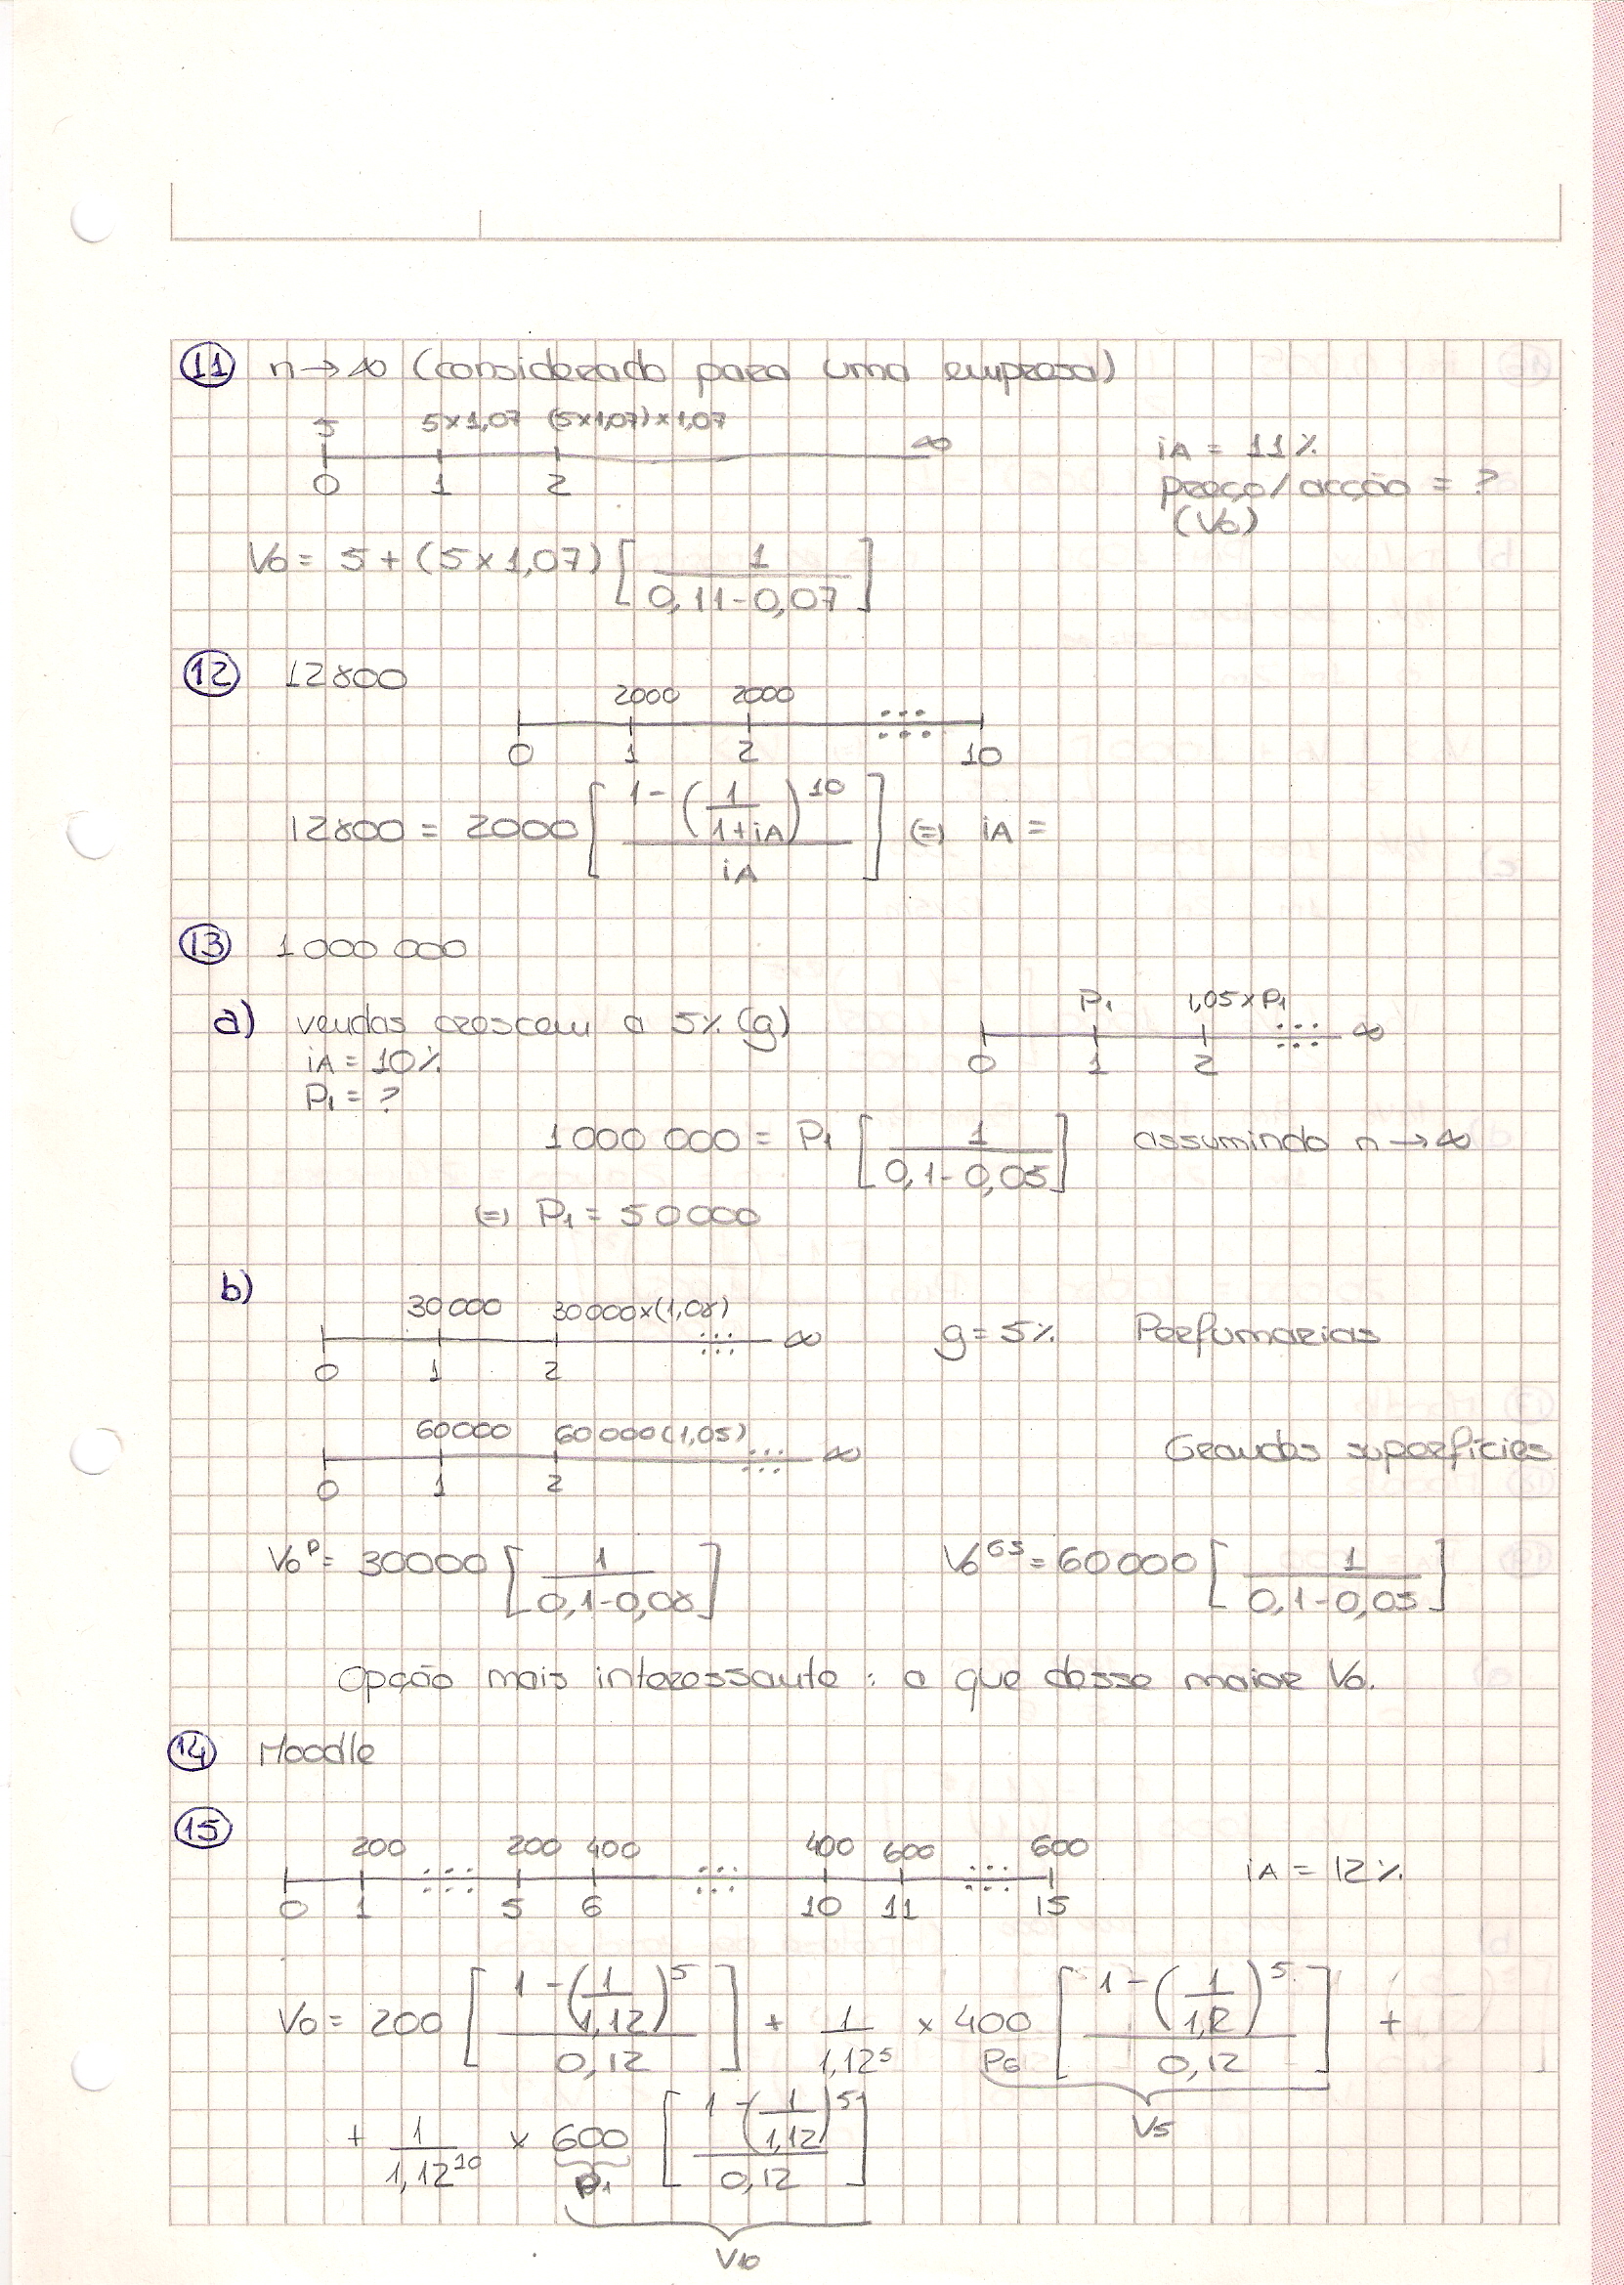 11 n → ∞ (considerado para uma empresa)
5 5×1,07 (5×1,07)×1,07 ∞
0 1 2
iA = 11%
preço/acção = ?
(V0)
V0 = 5 + (5×1,07) [ 1 / (0,11-0,07) ]
12 12800
2000 2000
0 1 2 ... 10
12800 = 2000 [ (1 - (1/(1+iA))^10) / iA ] (=) iA =
13 1000 000
a) vendas crescem a 5% (g)
iA = 10%
P1 = ?
P1 1,05×P1 ... ∞
0 1 2
1000 000 = P1 [ 1 / (0,1-0,05) ] assumindo n → ∞
(=) P1 = 50000
b)
30000 30000×(1,08) ... ∞
0 1 2
g = 5% Perfumarias
60000 60000(1,05) ... ∞
0 1 2
Grandes superfícies
V0^P = 30000 [ 1 / (0,1-0,08) ] V0^GS = 60000 [ 1 / (0,1-0,05) ]
Opção mais interessante: a que desse maior V0.
14 Moodle
15
200 ... 200 400 ... 400 600 ... 600
0 1 5 6 10 11 15
iA = 12%
V0 = 200 [ (1 - (1/1,12)^5) / 0,12 ] + 1/1,12^5 × 400 [ (1 - (1/1,12)^5) / 0,12 ] +
P6
V5
+ 1/1,12^10 × 600 [ (1 - (1/1,12)^5) / 0,12 ]
V10